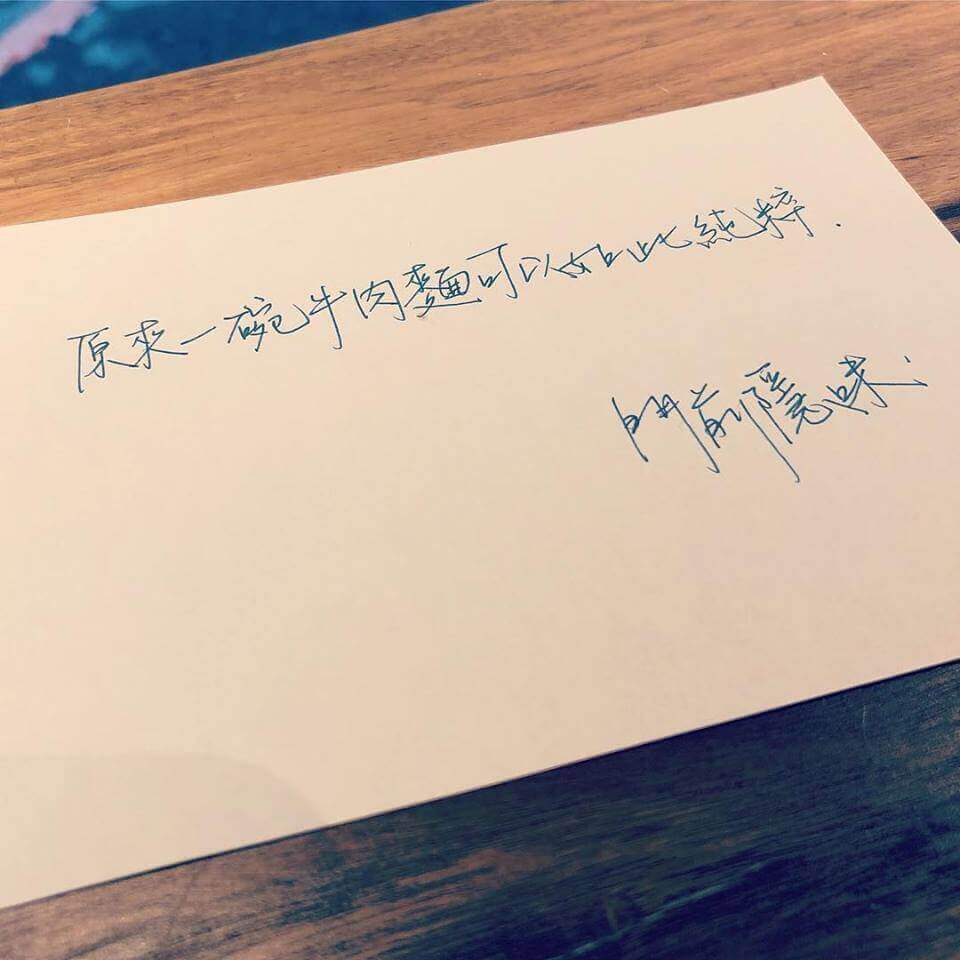 原來一碗牛肉麵可以如此純粹.
門前隱味.